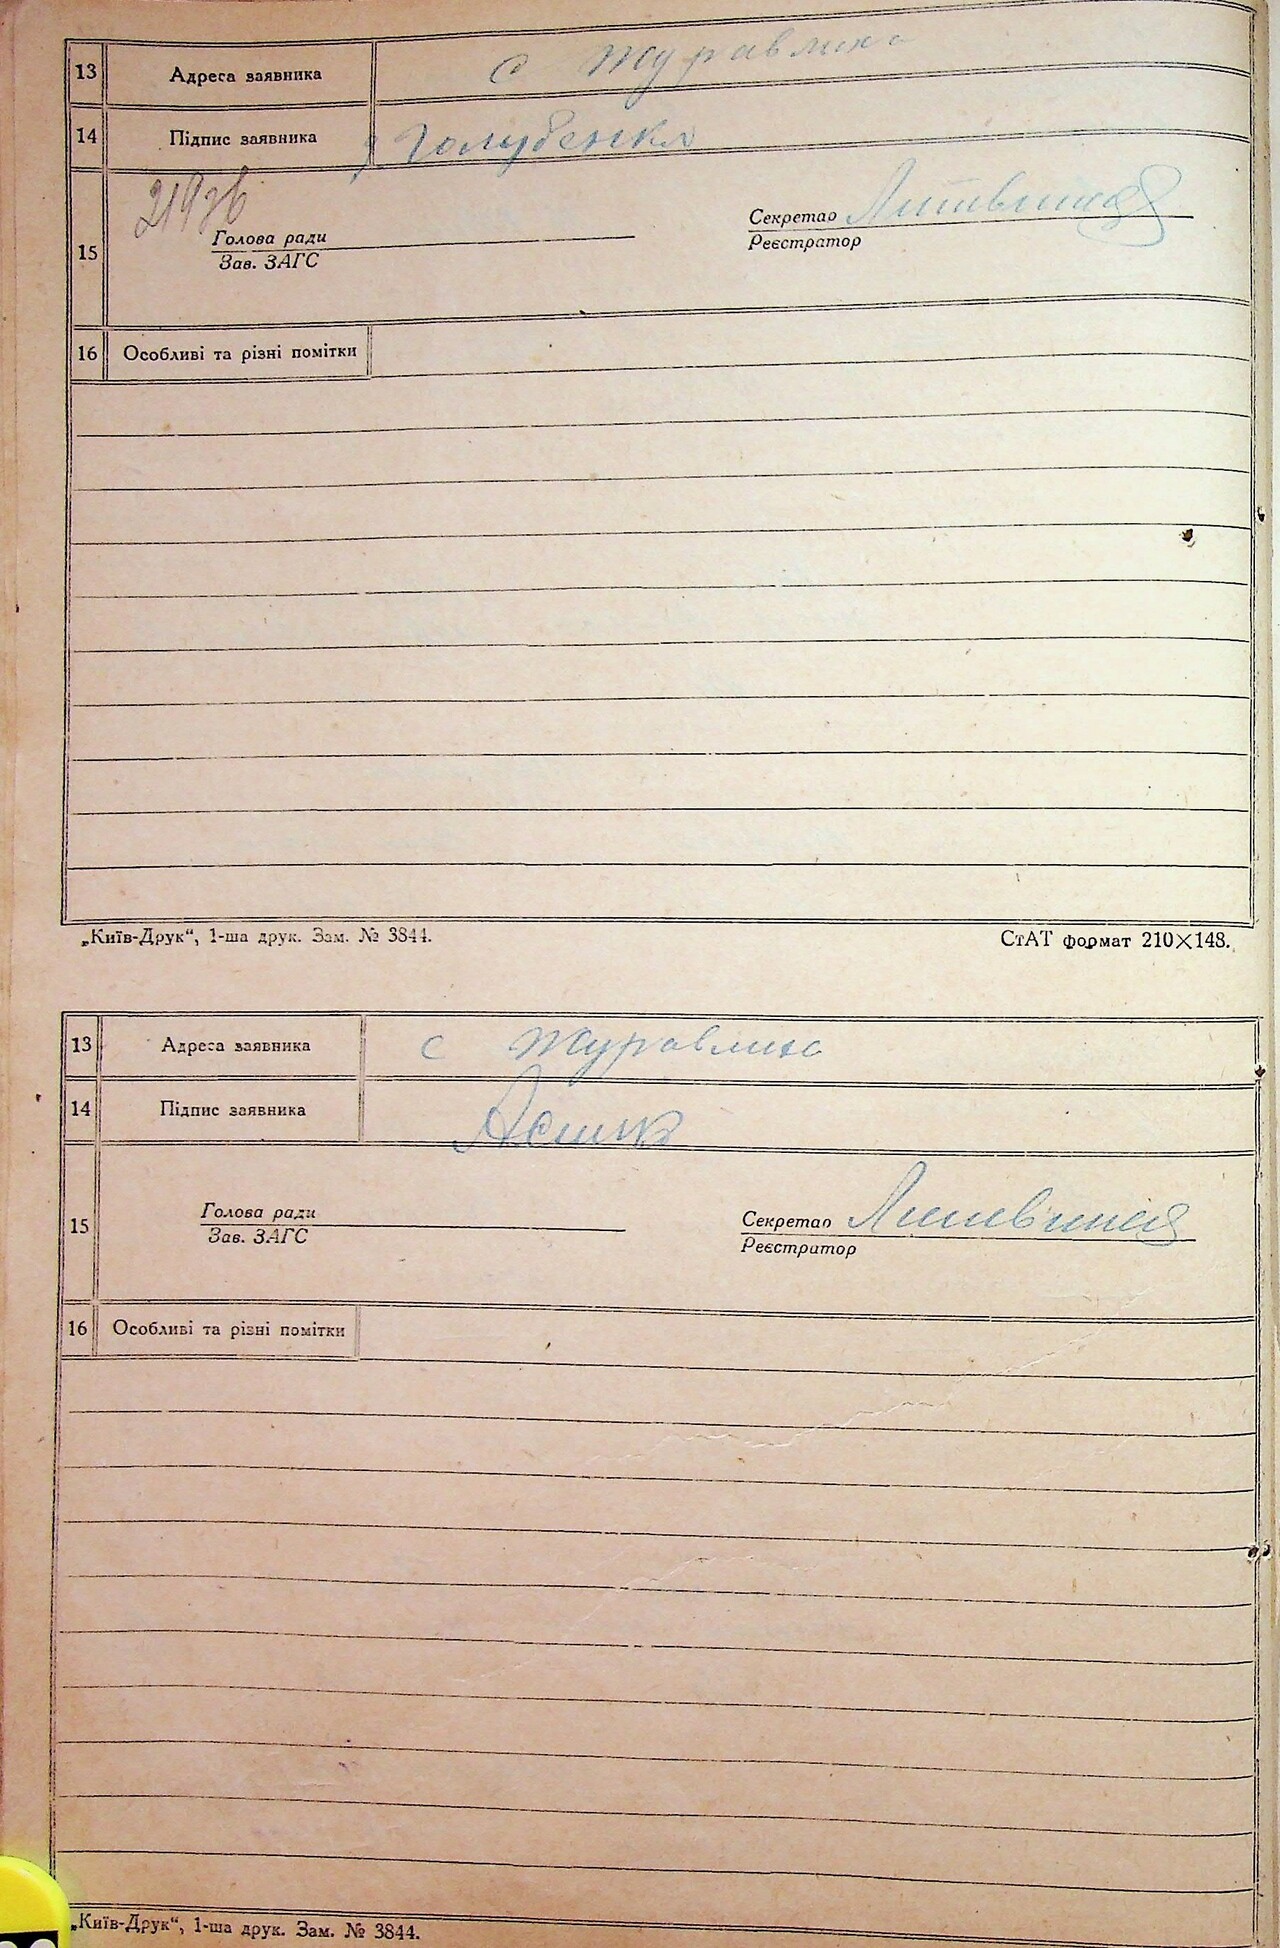 13 Адреса заявника с Журавлиха
14 Підпис заявника Голубенко
219зв
15 Голова ради Секретар Литвинов
Зав. ЗАГС Реєстратор
16 Особливі та різні помітки
„Київ-Друк“, 1-ша друк. Зам. № 3844. СтАТ формат 210×148.
13 Адреса заявника с Журавлиха
14 Підпис заявника
15 Голова ради Секретар Литвинов
Зав. ЗАГС Реєстратор
16 Особливі та різні помітки
„Київ-Друк“, 1-ша друк. Зам. № 3844.